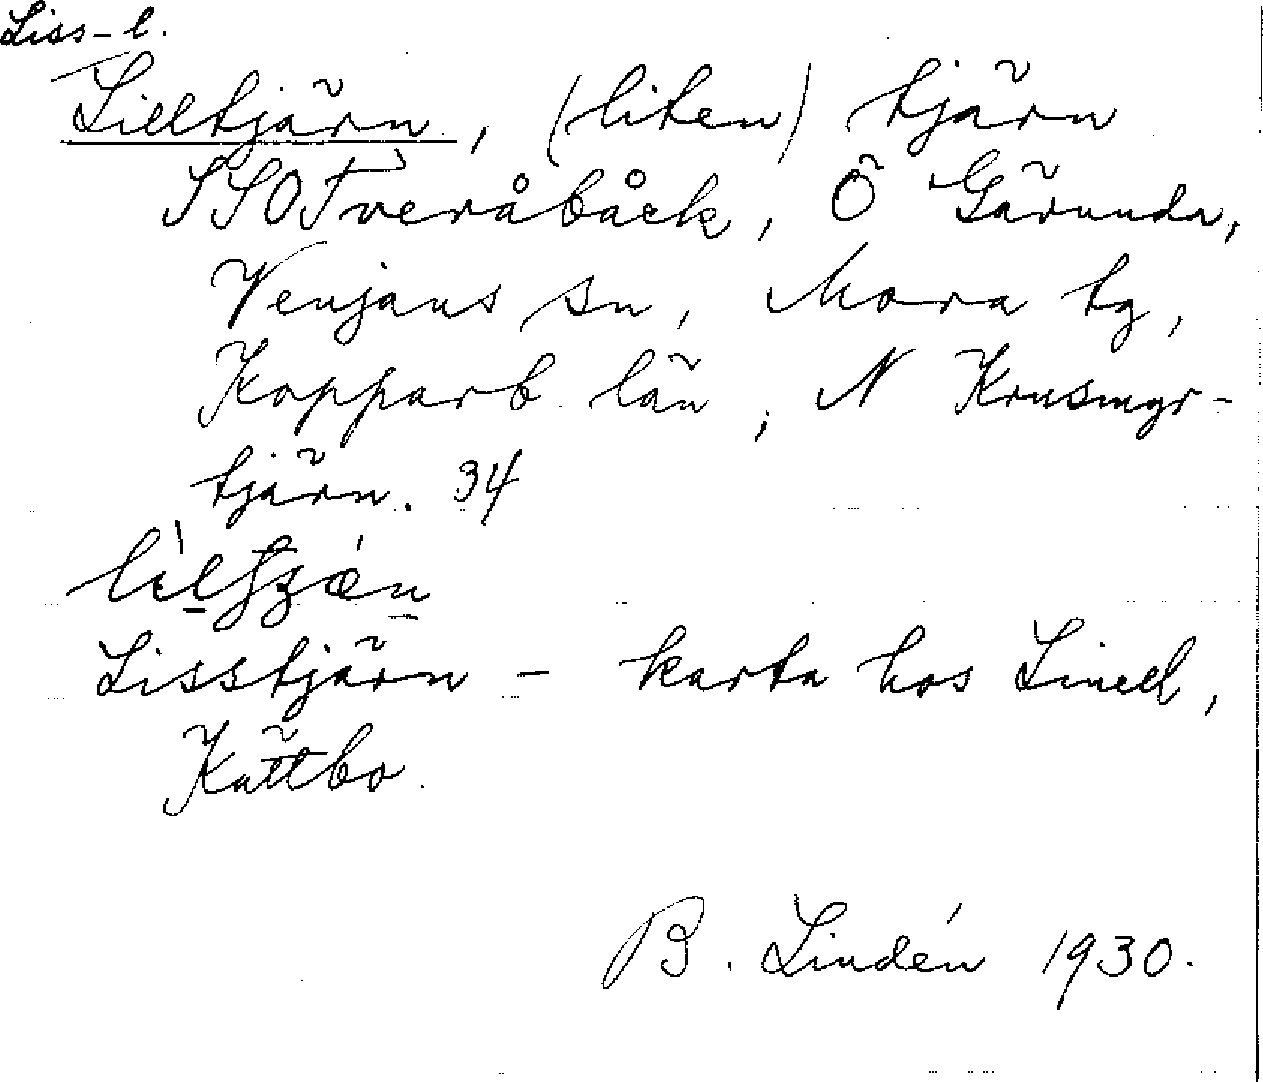 Liss-l.
Lilltjärn, (liten) tjärn
SSO Tveråbåck, Ö Gärunda,
Venjans sn, Mora tg,
Kopparb. län, N Krusmyr-
tjärn. 34
Lisstjärn - karta hos Linell,
Kättbo.
B. Lindén 1930.